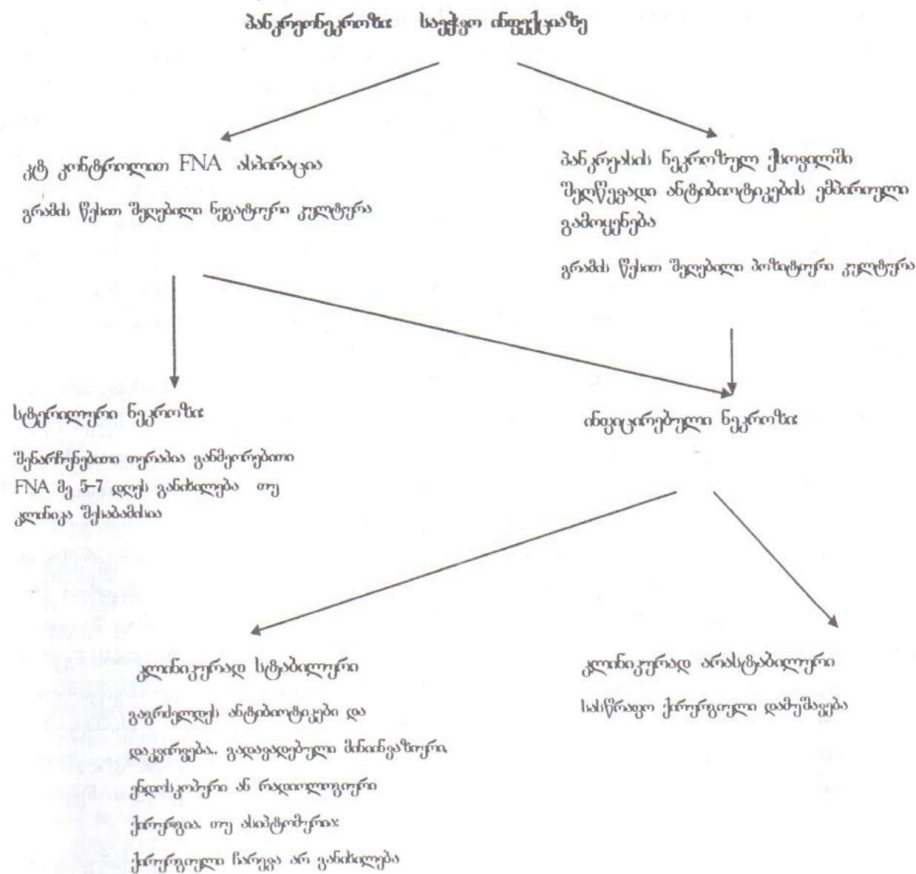 პანკრეონეკროზი: საეჭვო ინფექციაზე
კტ კონტროლით FNA ასპირაცია
გრამის წესით შეღებილი ნეგატიური კულტურა
პანკრეასის ნეკროზულ ქსოვილში
შეღწევადი ანტიბიოტიკების ემპირიული
გამოყენება
გრამის წესით შეღებილი პოზიტიური კულტურა
სტერილური ნეკროზი:
შენარჩუნებითი თერაპია განმეორებითი
FNA მე 5-7 დღეს განიხილება თუ
კლინიკა შესაბამისია
ინფიცირებული ნეკროზი:
კლინიკურად სტაბილური
გაგრძელდეს ანტიბიოტიკები და
დაკვირვება.. გადავადებული მინიინვაზიური,
ენდოსკოპური ან რადიოლოგიური
ქირურგია. თუ ასიპტომურია:
ქირურგიული ჩარევა არ განიხილება
კლინიკურად არასტაბილური
სასწრაფო ქირურგიული დამუშავება